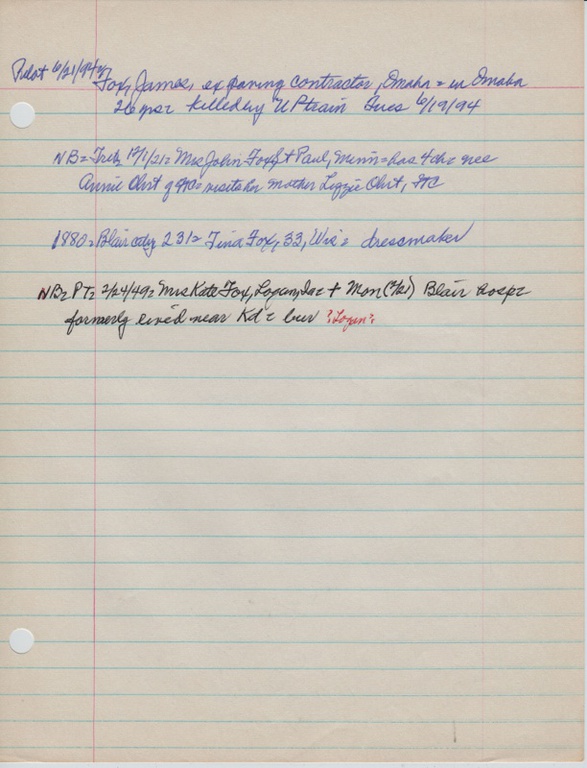 Pilot 6/21/94 = Fox, James, ex paving contractor, Omaha = in Omaha
26 yrs = killed by UP train Tues 6/19/94
NB = Trib 12/1/21 = Mrs John Fox, St Paul, Minn = has 4 ch = nee
Annie Ohrt of FtC = visits her mother Lizzie Ohrt, FtC
1880 = Blair city 231 = Tina Fox, 33, Wis = dressmaker
NB = PT = 2/24/49 = Mrs Kate Fox, Logan, Ia = + Mon (2/21) Blair hosp =
formerly lived near Kd = bur ? Logan ?